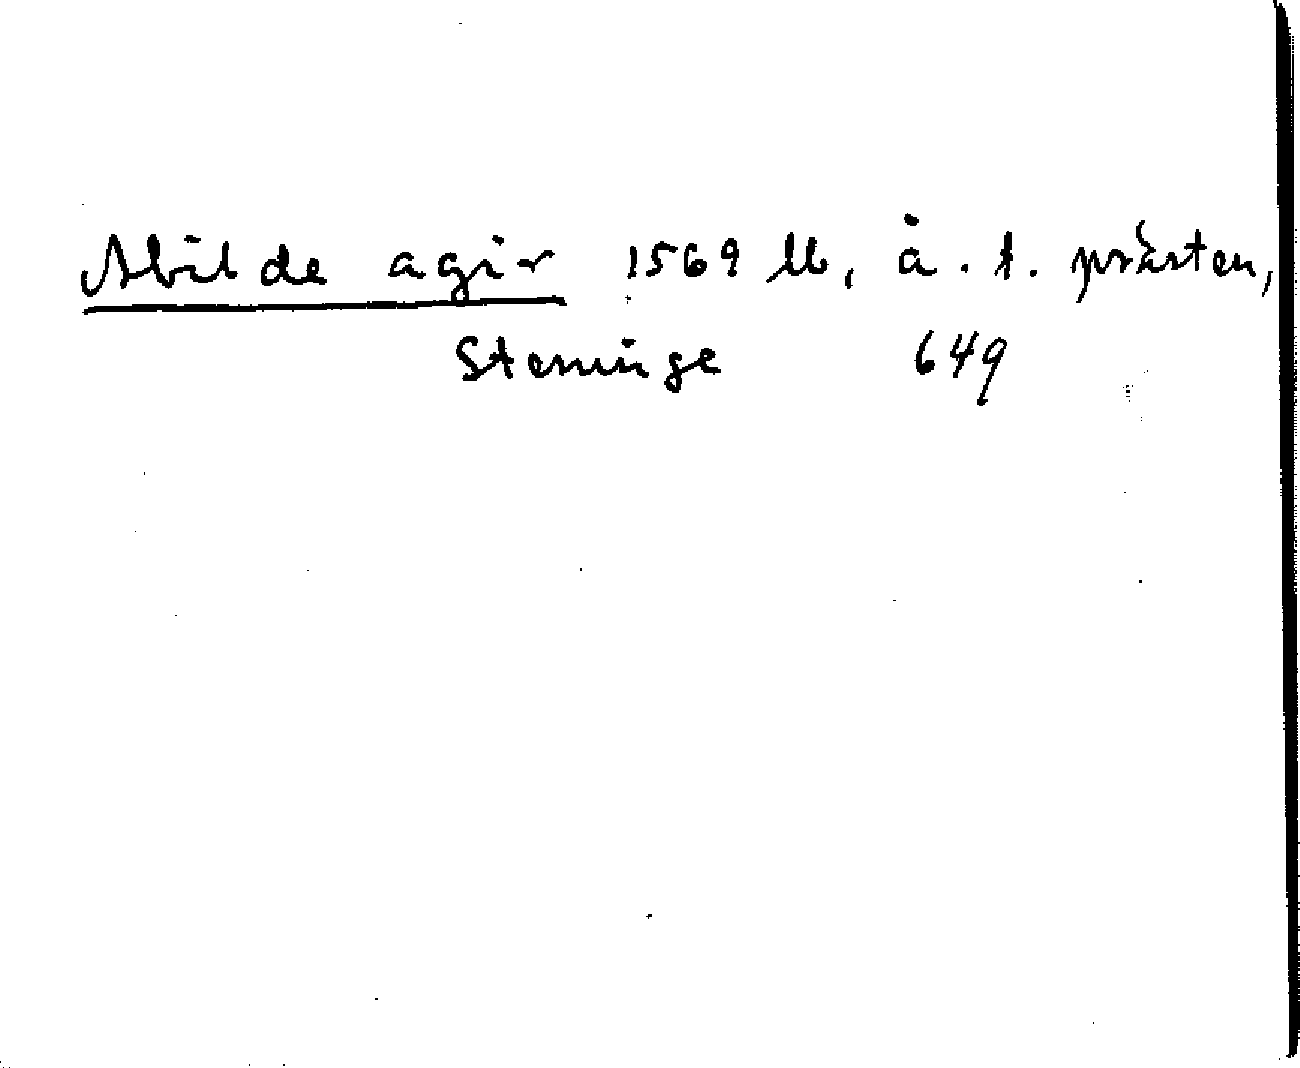 Abilde agir 1569 lb, å. t. prästen,
Steninge 649